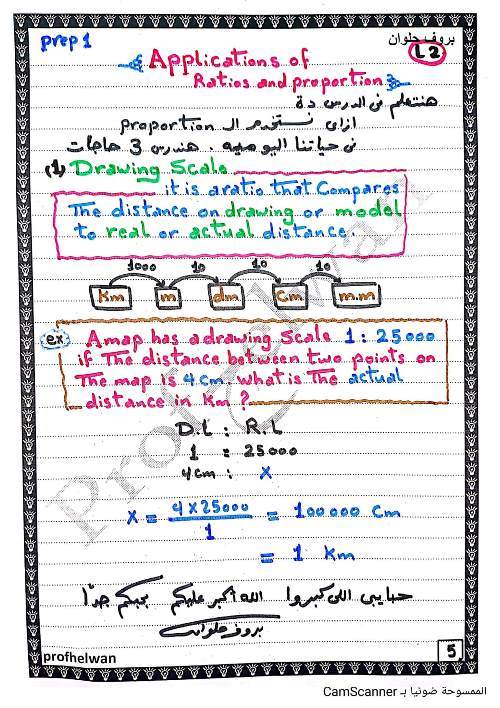 Prep 1
بروف حلوان
L2
Applications of
Ratios and proportion
هنتعلم فى الدرس دة
ازاى نستخدم ال proportion
فى حياتنا اليوميه . هندرس 3 حاجات
(1) Drawing Scale
it is a ratio that Compares
The distance on drawing or model
to real or actual distance.
1000 10 10 10
Km m dm Cm m.m
ex
A map has a drawing Scale 1 : 25000
if The distance between two points on
The map is 4 cm. what is The actual
distance in Km ?
D.L : R.L
1 : 25000
4 cm : X
X = 4 x 25000 / 1 = 100000 Cm
= 1 Km
حبايبى اللى كبروا الله أكبر عليكم بحبكم جدًا
بروف حلوان
profhelwan
5
Prof Helwan
الممسوحة ضوئيا بـ CamScanner